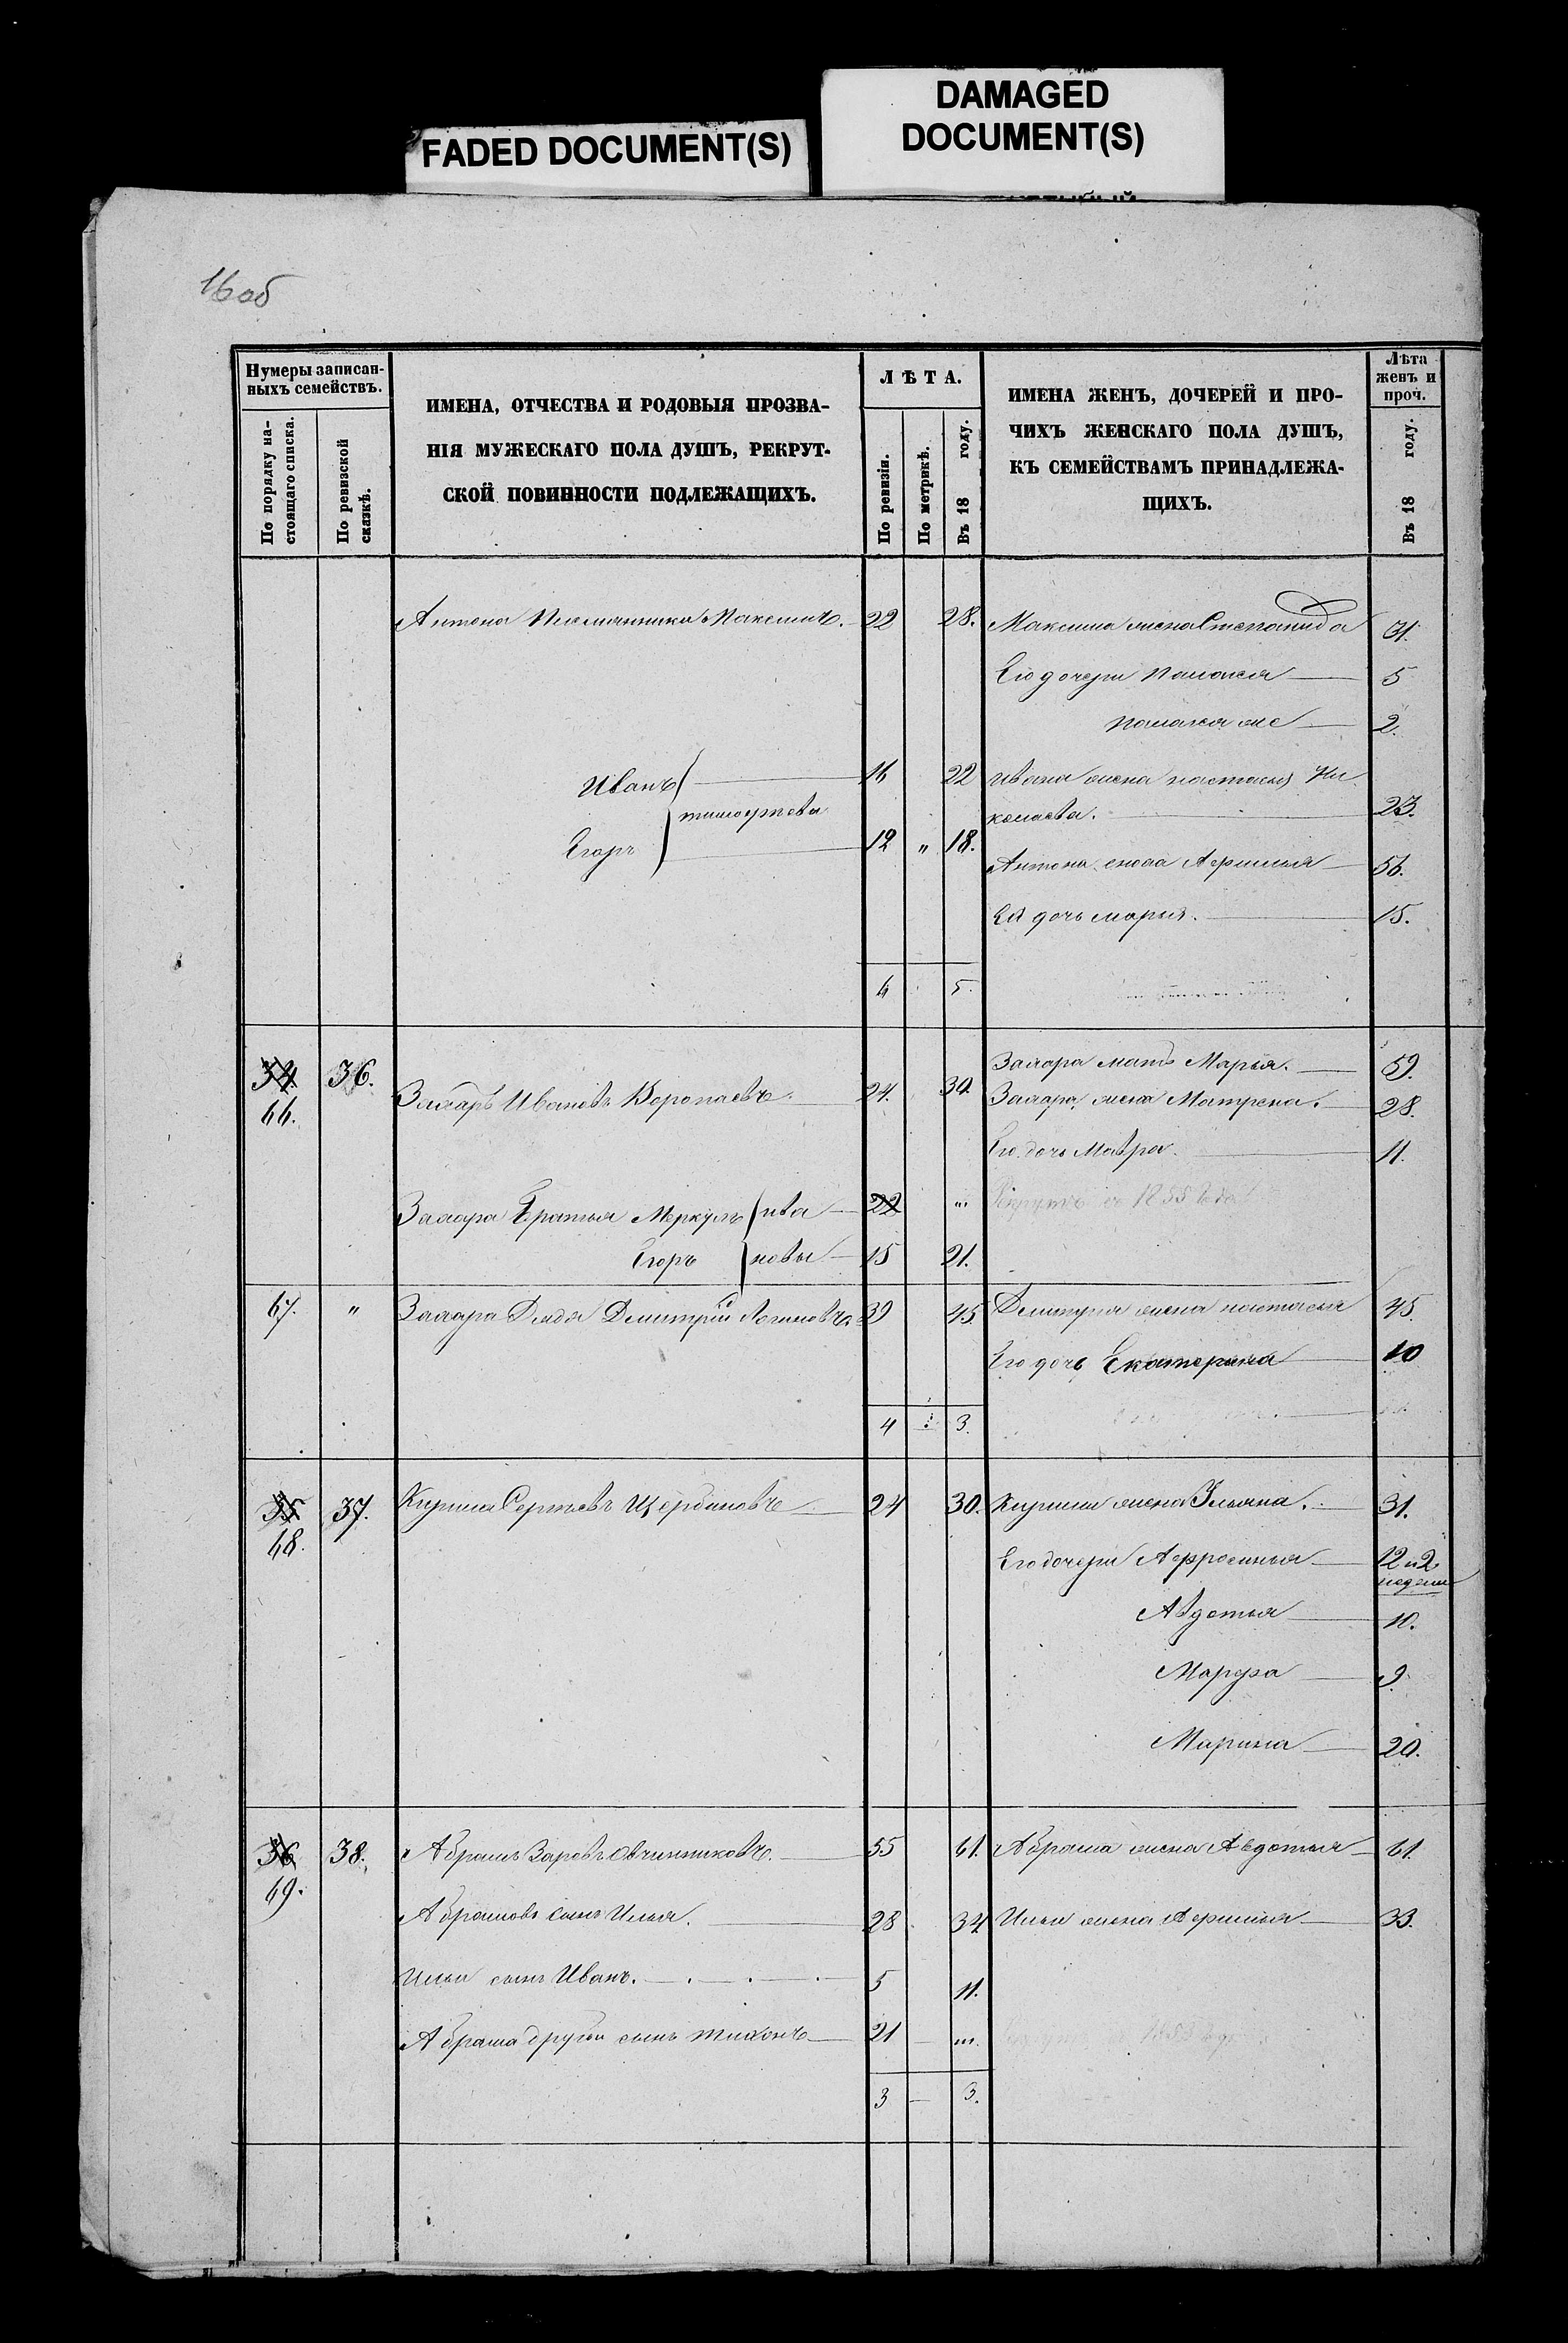 FADED DOCUMENT(S)
DAMAGED
DOCUMENT(S)
16об
Нумеры записан-
ныхъ семействъ.
По порядку на-
стоящаго списка.
По ревизской
сказкѣ.
ИМЕНА, ОТЧЕСТВА И РОДОВЫЯ ПРОЗВА-
НІЯ МУЖЕСКАГО ПОЛА ДУШЪ, РЕКРУТ-
СКОЙ ПОВИННОСТИ ПОДЛЕЖАЩИХЪ.
ЛѢТА.
По ревизіи.
По метрикѣ.
Въ 18 году.
ИМЕНА ЖЕНЪ, ДОЧЕРЕЙ И ПРО-
ЧИХЪ ЖЕНСКАГО ПОЛА ДУШЪ,
КЪ СЕМЕЙСТВАМЪ ПРИНАДЛЕЖА-
ЩИХЪ.
Лѣта
женъ и
проч.
Въ 18 году.
Антона Племянники Максимъ. 22 28. Максима жена Степанида 31.
Его дочери Палагея 5
Палагея же 2.
Иванъ 16 22 Ивана жена настасья Ни
колаева. 23.
тимофеевы
Егоръ 12 " 18.
Антона сноха Афимья 56.
Ея дочь марья. 15.
6 5.
34. 36. Захаръ Ивановъ Коропаевъ 24. 30.
66.
Захара мать Марья. 59.
Захара жена Матрена. 28.
Его дочь Мавра. 11.
Захара Братья Меркулъ ива 22 "' Рекрутъ въ 1855 годе
Егоръ новы 15 21.
67. " Захара Дядя Дмитрій Логиновъ 39 45. Дмитрія жена настасья 45.
Его дочь Екатерина 10
4 3.
35 37. Кирила Сергеевъ Щербиновъ 24 30. Кирилы жена Ульяна. 31.
68.
Его дочери Афросинья 12 и 2
недели
Авдотья 10.
Марфа 9.
Марина 20.
36 38. Абрамъ Заровъ Овчинниковъ. 55 61. Абрама жена Авдотья 61.
69.
Абрамовъ сынъ Илья. 28 34 Ильи жена Афимья 33.
Ильи сынъ Иванъ. 5 11.
Абрама другой сынъ тихонъ 21 "'
3 3.